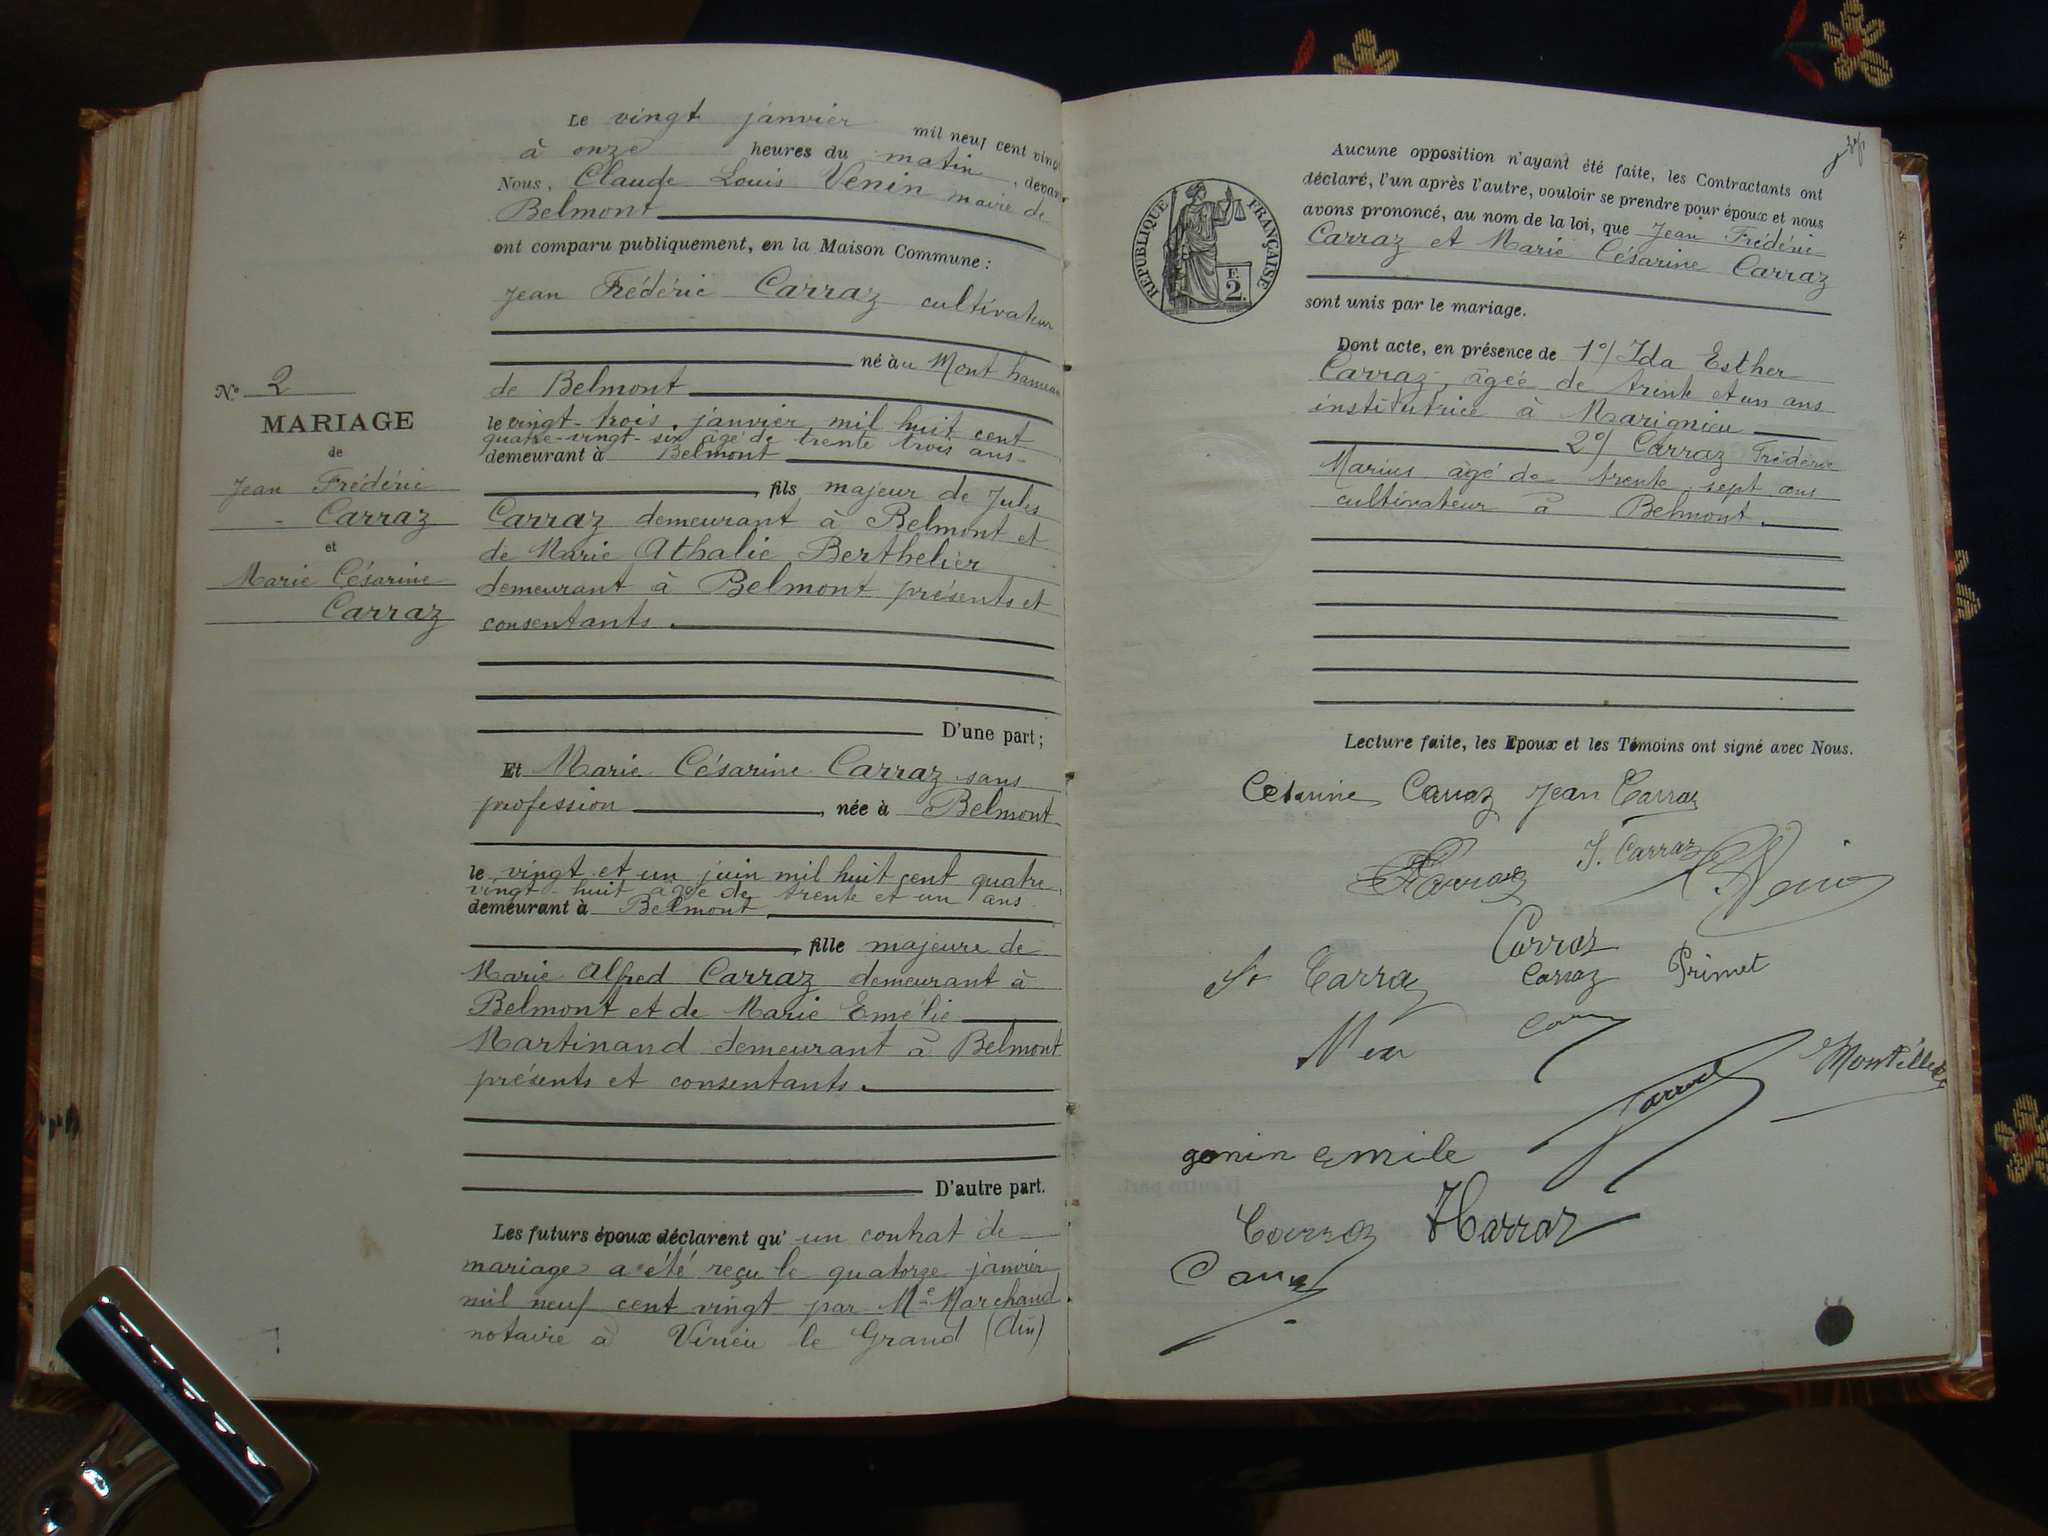 Le vingt janvier mil neuf cent vingt
à onze heures du matin, devant
Nous, Claude Louis Venin maire de
Belmont
ont comparu publiquement, en la Maison Commune :
Jean Frédéric Carraz cultivateur
né au Mont hameau
de Belmont
le vingt-trois janvier mil huit cent
quatre-vingt-six âgé de trente trois ans
demeurant à Belmont
fils majeur de Jules
Carraz demeurant à Belmont et
de Marie Athalie Berthelier
demeurant à Belmont présents et
consentants.
D'une part ;
N° 2
MARIAGE
de
Jean Frédéric
Carraz
et
Marie Césarine
Carraz
Et Marie Césarine Carraz sans
profession, née à Belmont
le vingt et un juin mil huit cent quatre
vingt-huit âgée de trente et un ans
demeurant à Belmont
fille majeure de
Marie Alfred Carraz demeurant à
Belmont et de Marie Emélie
Martinand demeurant à Belmont
présents et consentants.
D'autre part.
Les futurs époux déclarent qu' un contrat de
mariage a été reçu le quatorze janvier
mil neuf cent vingt par Me Marchand
notaire à Virieu le Grand (Ain)
RÉPUBLIQUE FRANÇAISE
F.
2.
Aucune opposition n'ayant été faite, les Contractants ont
déclaré, l'un après l'autre, vouloir se prendre pour époux et nous
avons prononcé, au nom de la loi, que Jean Frédéric
Carraz et Marie Césarine Carraz
sont unis par le mariage.
Dont acte, en présence de 1°/ Ida Esther
Carraz, âgée de trente et un ans
institutrice à Marignieu
2°/ Carraz Frédéric
Marius âgé de trente sept ans
cultivateur à Belmont.
Lecture faite, les Epoux et les Témoins ont signé avec Nous.
Césarine Carraz Jean Carraz
F Carraz I. Carraz Venin
Carraz
Carraz Carraz Primet
genin Emile
Carraz Carraz